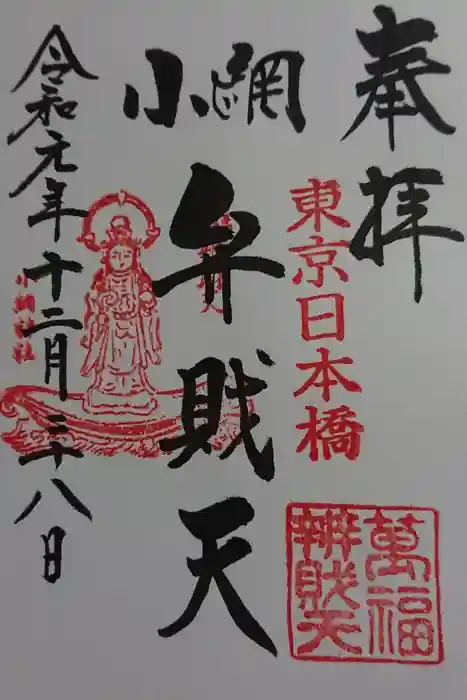 奉拝
東京日本橋
萬福
辨財天
小網
弁財天
令和元年十二月二十八日
小網神社